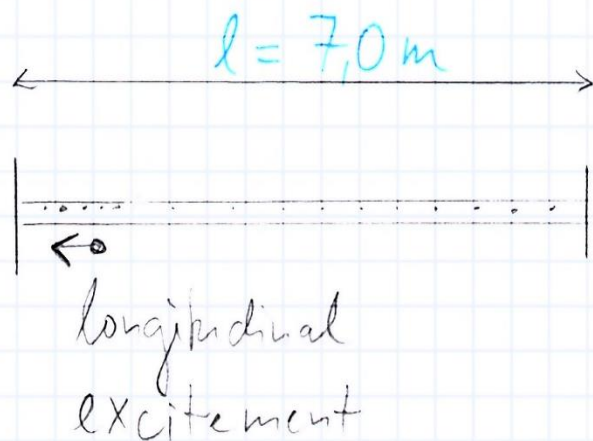 l = 7,0 m
longitudinal
excitement